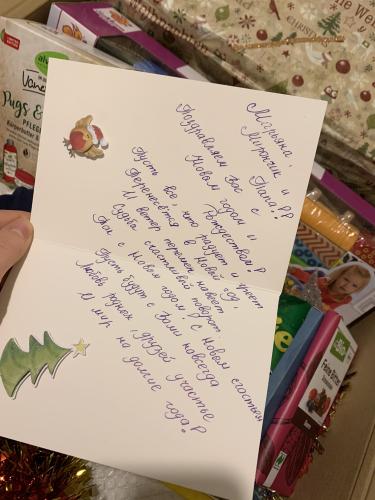 Марьяна,
Мирончик и
Папа!
Поздравляем Вас с
Новым годом и
Рождеством!
Пусть всё, что радует и греет
Перенесётся в Новый год,
И ветер перемен навеет
Судьбы счастливый поворот
с Новым годом! С Новым счастьем
Пусть будут с Вами навсегда
Любовь родных, друзей участье
И мир на долгие года!
Pugs &
PFLEGE
Körperbutter